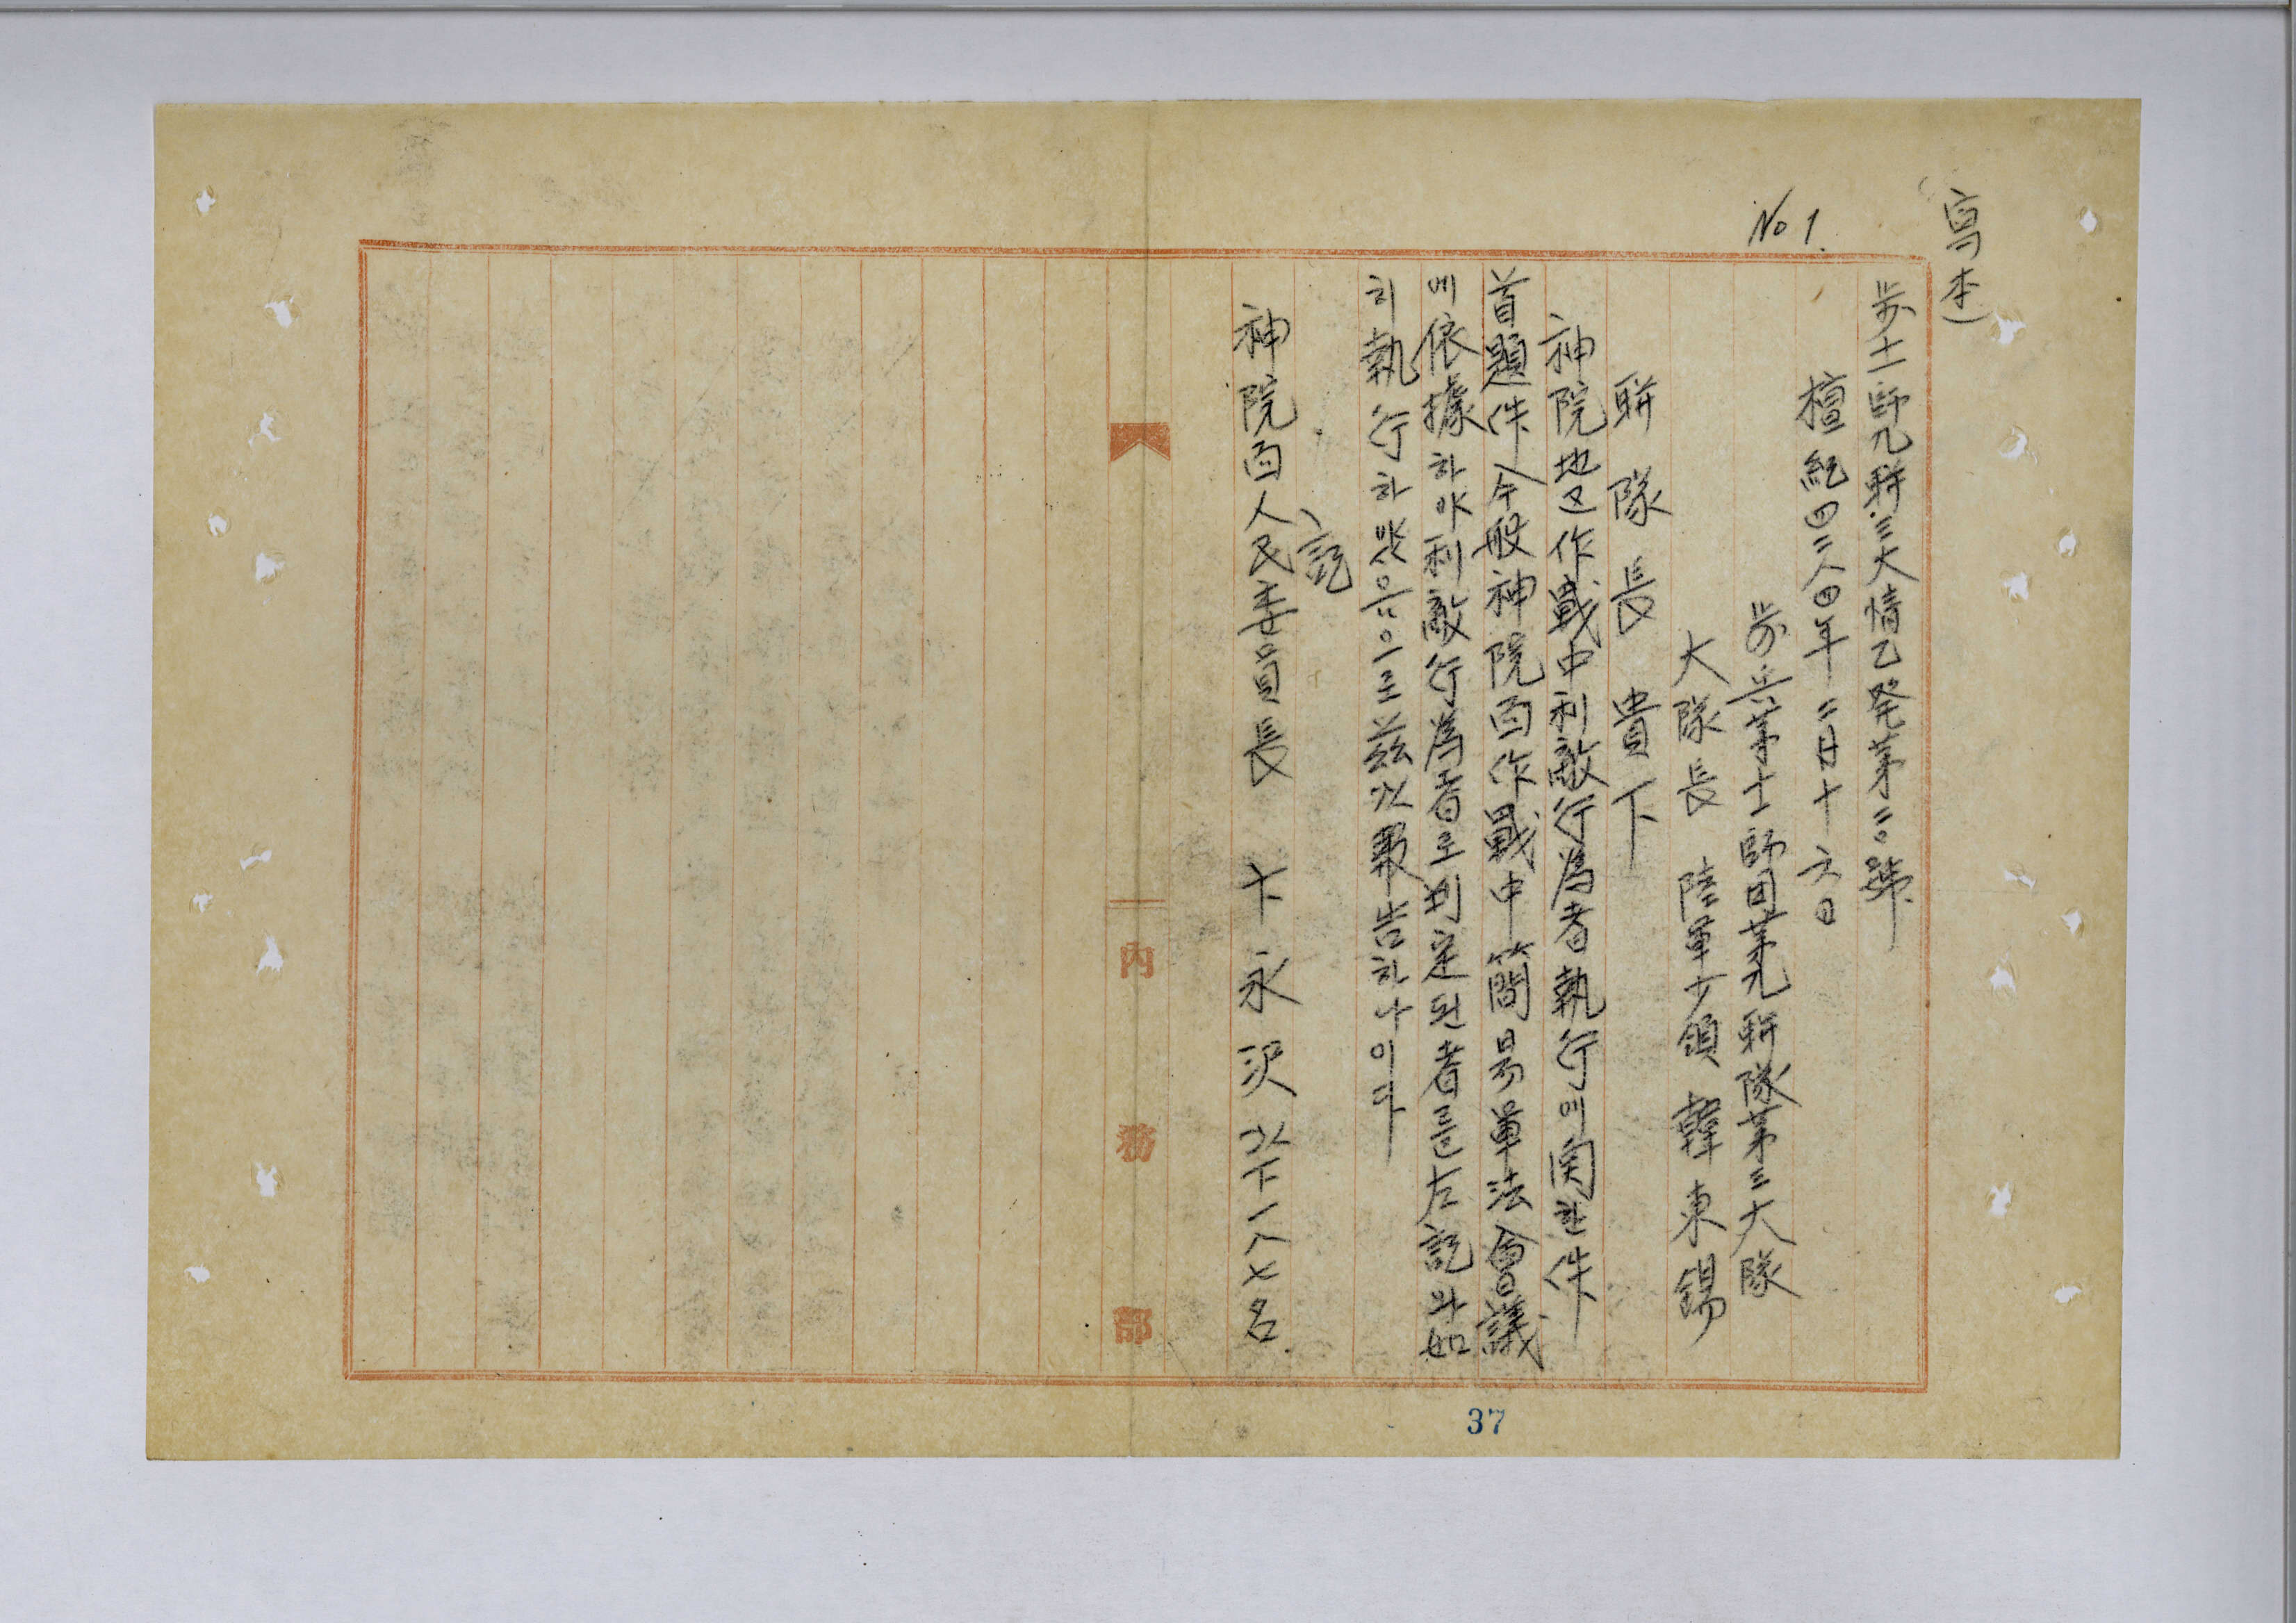 寫本)
No 1.
步十一師九聯三大情乙発第二〇號
檀紀四二八四年 二月十六日
步兵第十一師団第九聯隊第三大隊
大隊長 陸軍少領 韓東錫
聯隊長 貴下
神院地区作戰中利敵行爲者執行에関한件
首題件今般神院面作戰中簡易軍法會議
에依據하야利敵行爲者로判定된者를左記와如
히執行하였음으로玆以報告하나이다
記
神院面人民委員長 卞永沢 以下一八七名
內務部
37